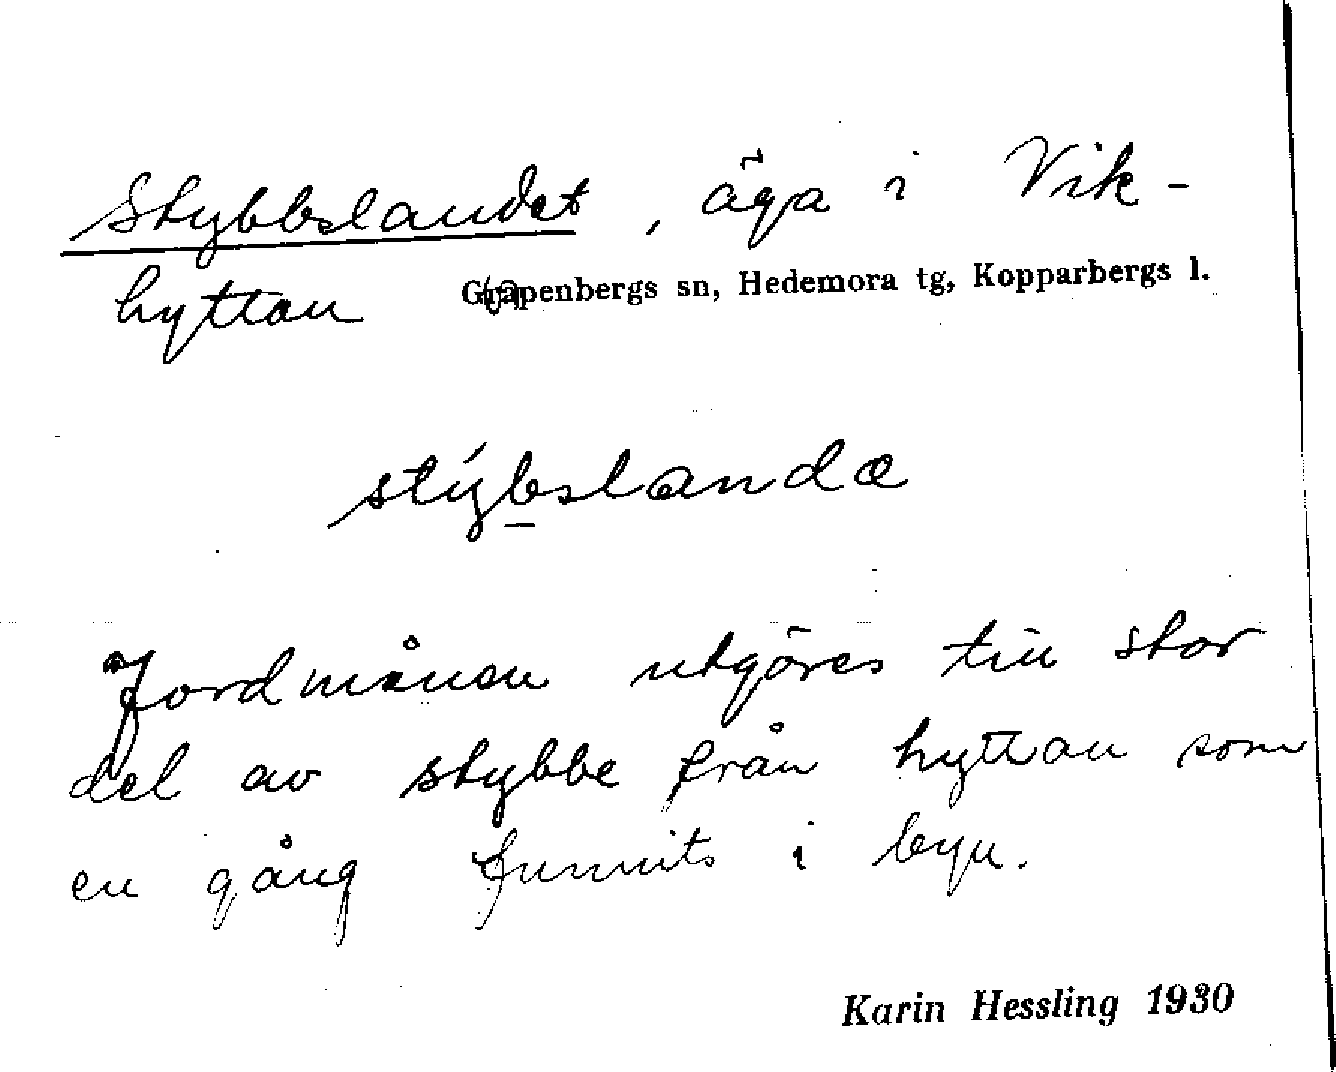 Stybbslandet, äga i Vik-
hyttan Garpenbergs sn, Hedemora tg, Kopparbergs l.
stýbslandæ
Jordmånen utgöres till stor
del av stybbe från hyttan som
en gång funnits i byn.
Karin Hessling 1930